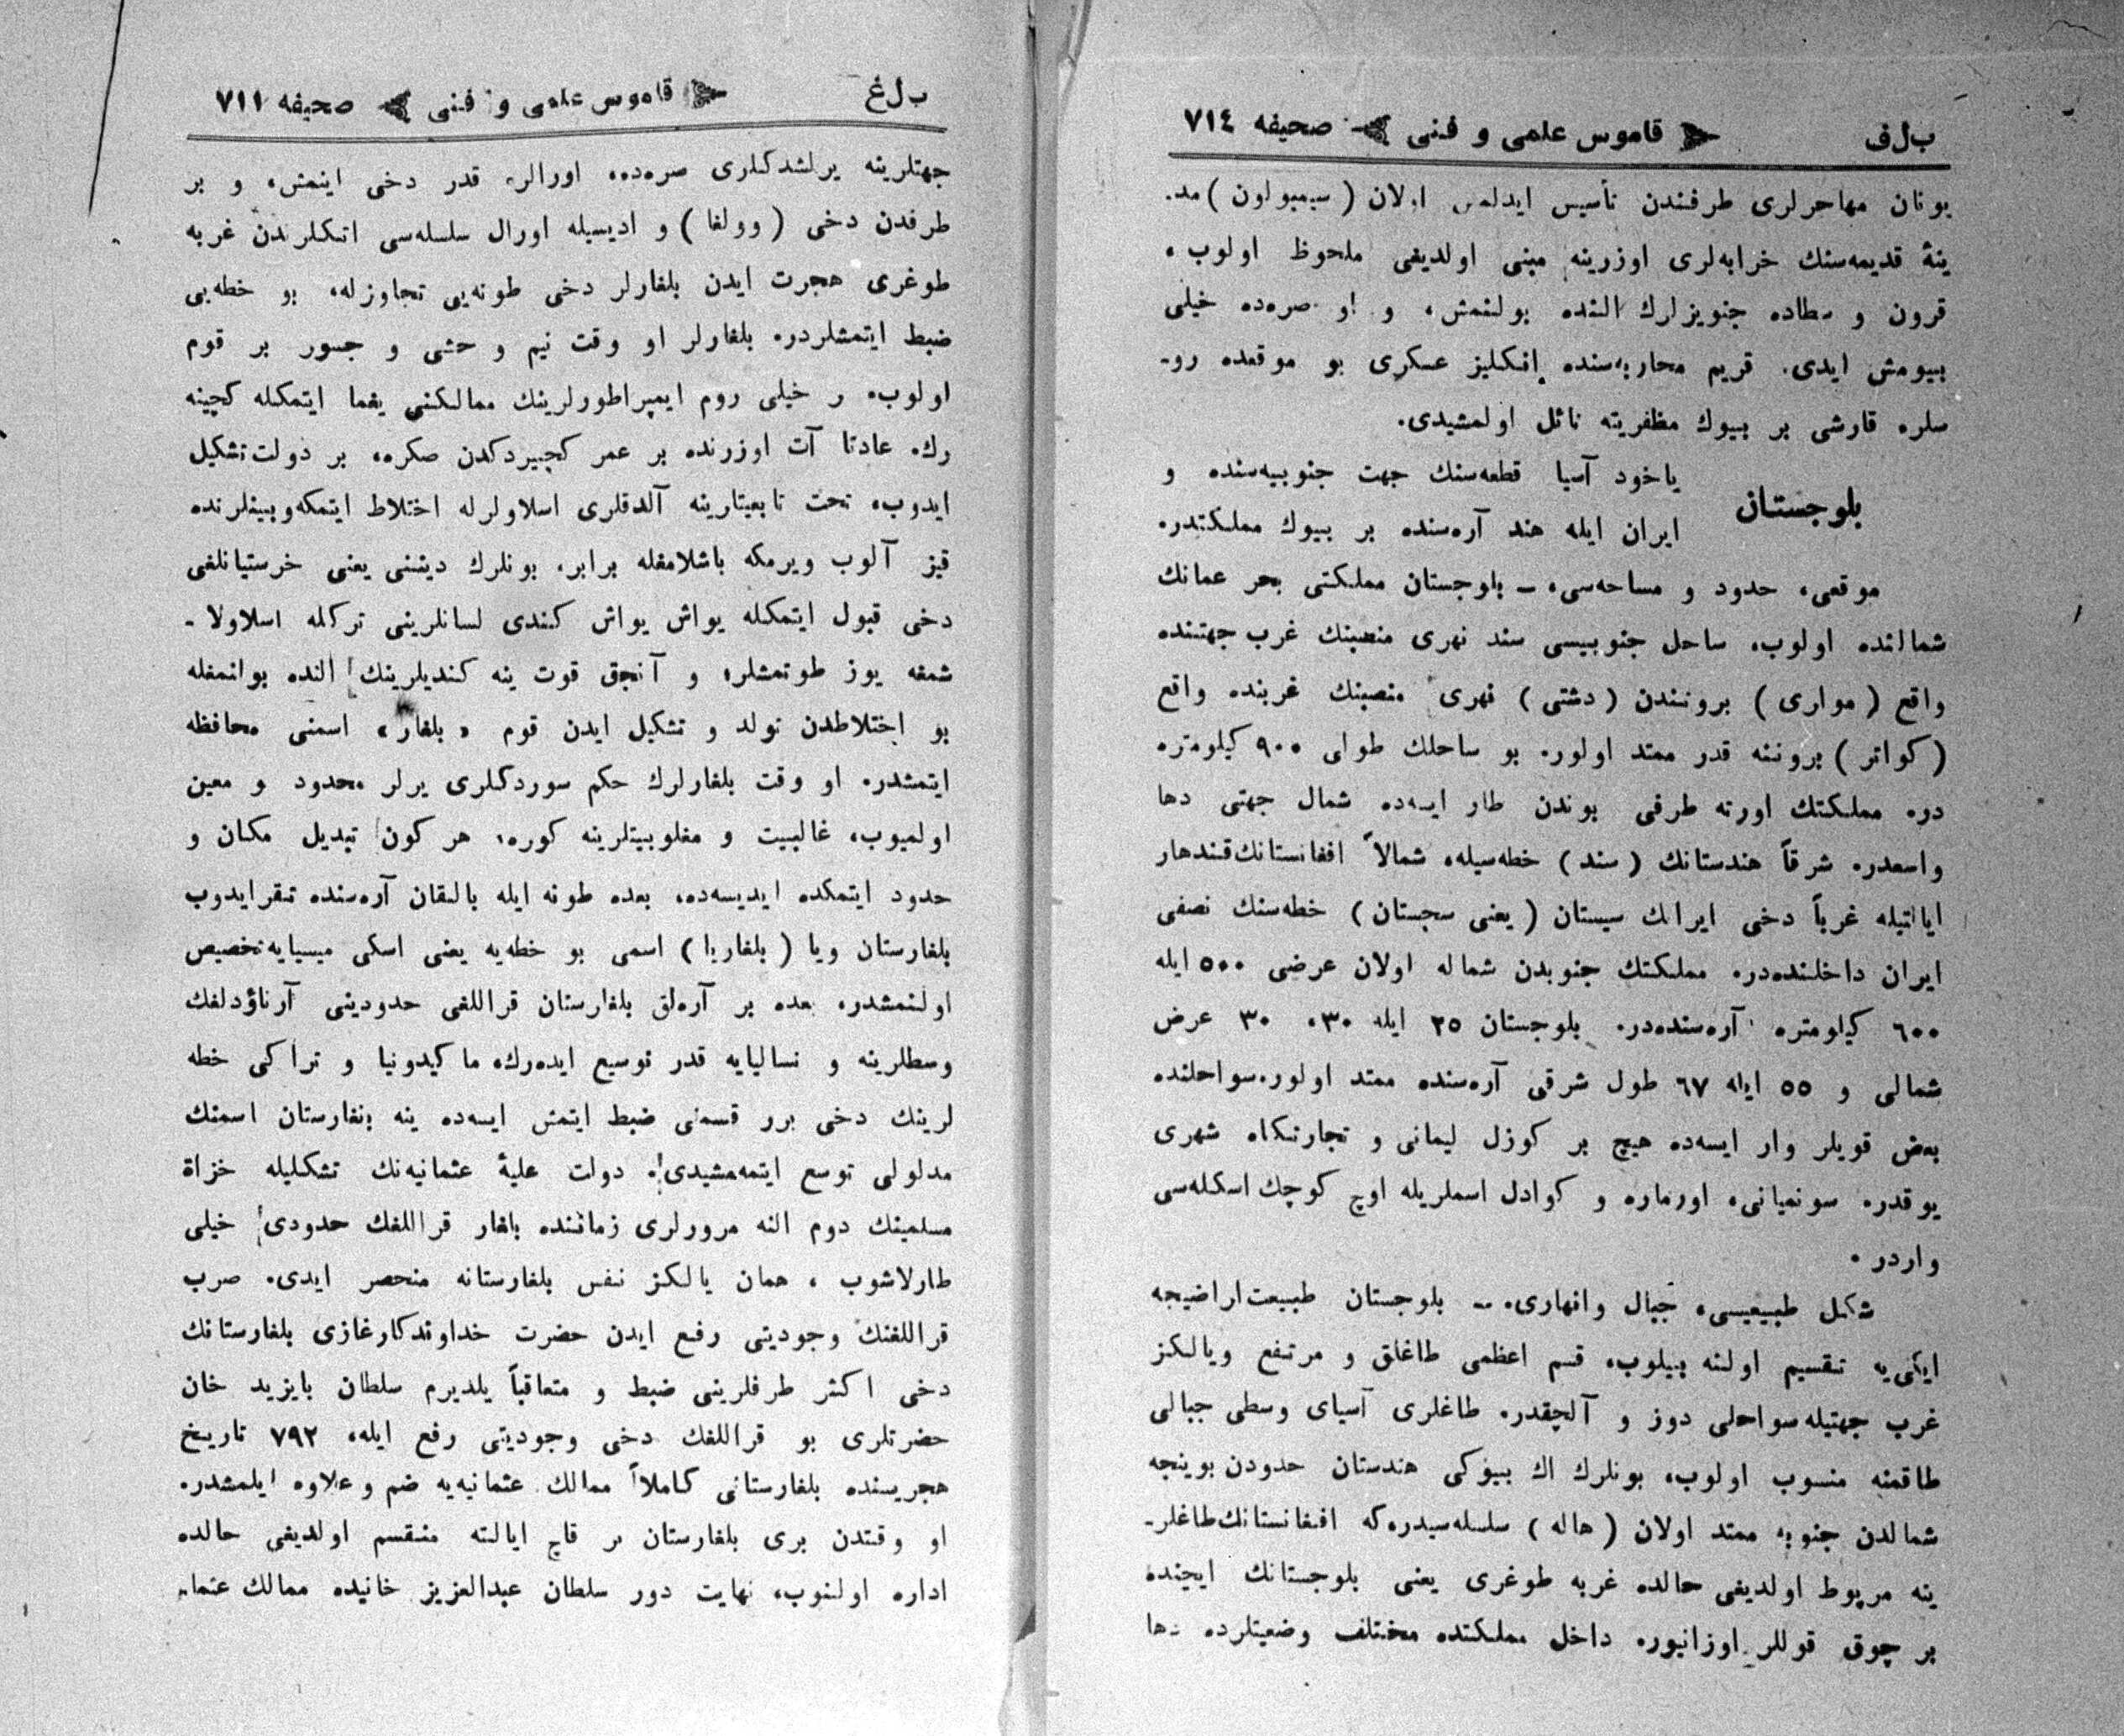 ب ل ف قاموس علمی و فنی صحیفه ٧١٤
یونان مهاجرلری طرفندن تأسیس ایدلمش اولان ( سیمبولون ) مد۔
ینهٔ قدیمه‌سنك خرابه‌لری اوزرینه مبنی اولدیغی ملحوظ اولوب،
قرون و سطاده جنویزلرك النده بولنمش، و او صره‌ده خیلی
بیومش ایدی. قریم محاربه‌سنده انكلیز عسكری بو موقعده رو۔
سلره قارشی بر بیوك مظفریته نائل اولمشیدی.
بلوجستان یاخود آسیا قطعه‌سنك جهت جنوبیه‌سنده و
ایران ایله هند آره‌سنده بر بیوك مملكتدر.
موقعی، حدود و مساحه‌سی، ــ بلوجستان مملكتی بحر عمانك
شمالنده اولوب، ساحل جنوبیسی سند نهری منصبنك غرب جهتنده
واقع ( مواری ) بروننندن ( دشتی ) نهری منصبنك غربنده واقع
( كواتر ) بروننه قدر ممتد اولور. بو ساحلك طولی ٩٠٠ كیلومتره
در. مملكتك اورته طرفی بوندن طار ایسه‌ده شمال جهتی دها
واسعدر. شرقاً هندستانك ( سند ) خطه‌سیله، شمالاً افغانستانك قندهار
ایالتیله غرباً دخی ایرانك سیستان ( یعنی سجستان ) خطه‌سنك نصفی
ایران داخلنده‌در. مملكتك جنوبدن شماله اولان عرضی ٥٠٠ ایله
٦٠٠ كیلومتره آره‌سنده‌در. بلوجستان ٢٥ ایله ٣٠، ٣٠ عرض
شمالی و ٥٥ ایله ٦٧ طول شرقی آره‌سنده ممتد اولور. سواحلنده
بعض قویلر وار ایسه‌ده هیچ بر كوزل لیمانی و تجارتكاه شهری
یوقدر. سونمیانی، اورماره و كوادل اسملریله اوچ كوچك اسكله‌سی
واردر.
شكل طبیعیسی، جبال وانهاری. ــ بلوجستان طبیعت اراضیجه
ایكی‌یه تقسیم اولنه بیلوب، قسم اعظمی طاغلق و مرتفع ویالكز
غرب جهتیله سواحلی دوز و آلچقدر. طاغلری آسیای وسطی جبالی
طاقمنه منسوب اولوب، بونلرك اك بیوكی هندستان حدودن بوینجه
شمالدن جنوبه ممتد اولان ( هاله ) سلسله‌سیدركه افغانستانك طاغلر۔
ینه مربوط اولدیغی حالده غربه طوغری یعنی بلوجستانك ایچنده
بر چوق قوللر اوزانیور. داخل مملكتده مختلف وضعیتلرده دها
ب ل غ قاموس علمی و فنی صحیفه ٧١١
جهتلرینه یرلشدكلری صره‌ده، اورالره قدر دخی اینمش، و بر
طرفدن دخی ( وولغا ) و ادیسیله اورال سلسله‌سی اتكلرندن غربه
طوغری هجرت ایدن بلغارلر دخی طونه‌یی تجاوزله، بو خطه‌یی
ضبط ایتمشلردر. بلغارلر او وقت نیم و حشی و جسور بر قوم
اولوب، خیلی روم ایمپراطورلرینك ممالكنی یغما ایتمكله كچینه
رك، عادتا آت اوزرنده بر عمر كچیردكدن صكره، بر دولت تشكیل
ایدوب، تحت تابعیتلرینه آلدقلری اسلاولرله اختلاط ایتمكه وبینلرنده
قیز آلوب ویرمكه باشلامغله برابر، بونلرك دیننی یعنی خرستیانلغی
دخی قبول ایتمكله یواش یواش كندی لسانلرینی تركله اسلاولا۔
شمغه یوز طوتمشلر؛ و آنجق قوت ینه كندیلرینك النده بولنمغله
بو اختلاطدن تولد و تشكیل ایدن قوم « بلغار » اسمنی محافظه
ایتمشدر. او وقت بلغارلرك حكم سوردكلری یرلر محدود و معین
اولمیوب، غالبیت و مغلوبیتلرینه كوره، هر كون تبدیل مكان و
حدود ایتمكده ایدیسه‌ده، بعده طونه ایله بالقان آره‌سنده تقرایدوب
بلغارستان ویا ( بلغاریا ) اسمی بو خطه‌یه یعنی اسكی میسیایه تخصیص
اولنمشدر. بعده بر آره‌لق بلغارستان قراللغی حدودینی آرناؤدلغك
وسطلرینه و تسالیایه قدر توسیع ایده‌رك، ماكیدونیا و تراكی خطه
لرینك دخی برر قسمنی ضبط ایتمش ایسه‌ده ینه بلغارستان اسمنك
مدلولی توسع ایتمه‌مشیدی. دولت علیهٔ عثمانیه‌نك تشكیلیله غزاة
مسلمینك دوم النه مرورلری زماننده بلغار قراللغك حدودی خیلی
طارلاشوب، همان یالكز نفس بلغارستانه منحصر ایدی. صرب
قراللغنك وجودینی رفع ایدن حضرت خداوندكارغازی بلغارستانك
دخی اكثر طرفلرینی ضبط و متعاقباً یلدیرم سلطان بایزید خان
حضرتلری بو قراللغك دخی وجودینی رفع ایله، ٧٩٢ تاریخ
هجریسنده بلغارستانی كاملاً ممالك عثمانیه‌یه ضم و علاوه ایلمشدر.
او وقتدن بری بلغارستان بر قاچ ایالته منقسم اولدیغی حالده
اداره اولنوب، نهایت دور سلطان عبدالعزیز خانیده ممالك عثما۔